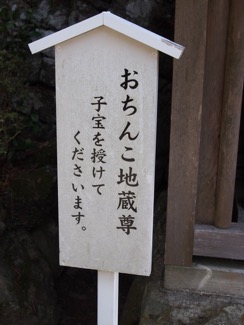 おちんこ地蔵尊
子宝を授けて
くださいます。